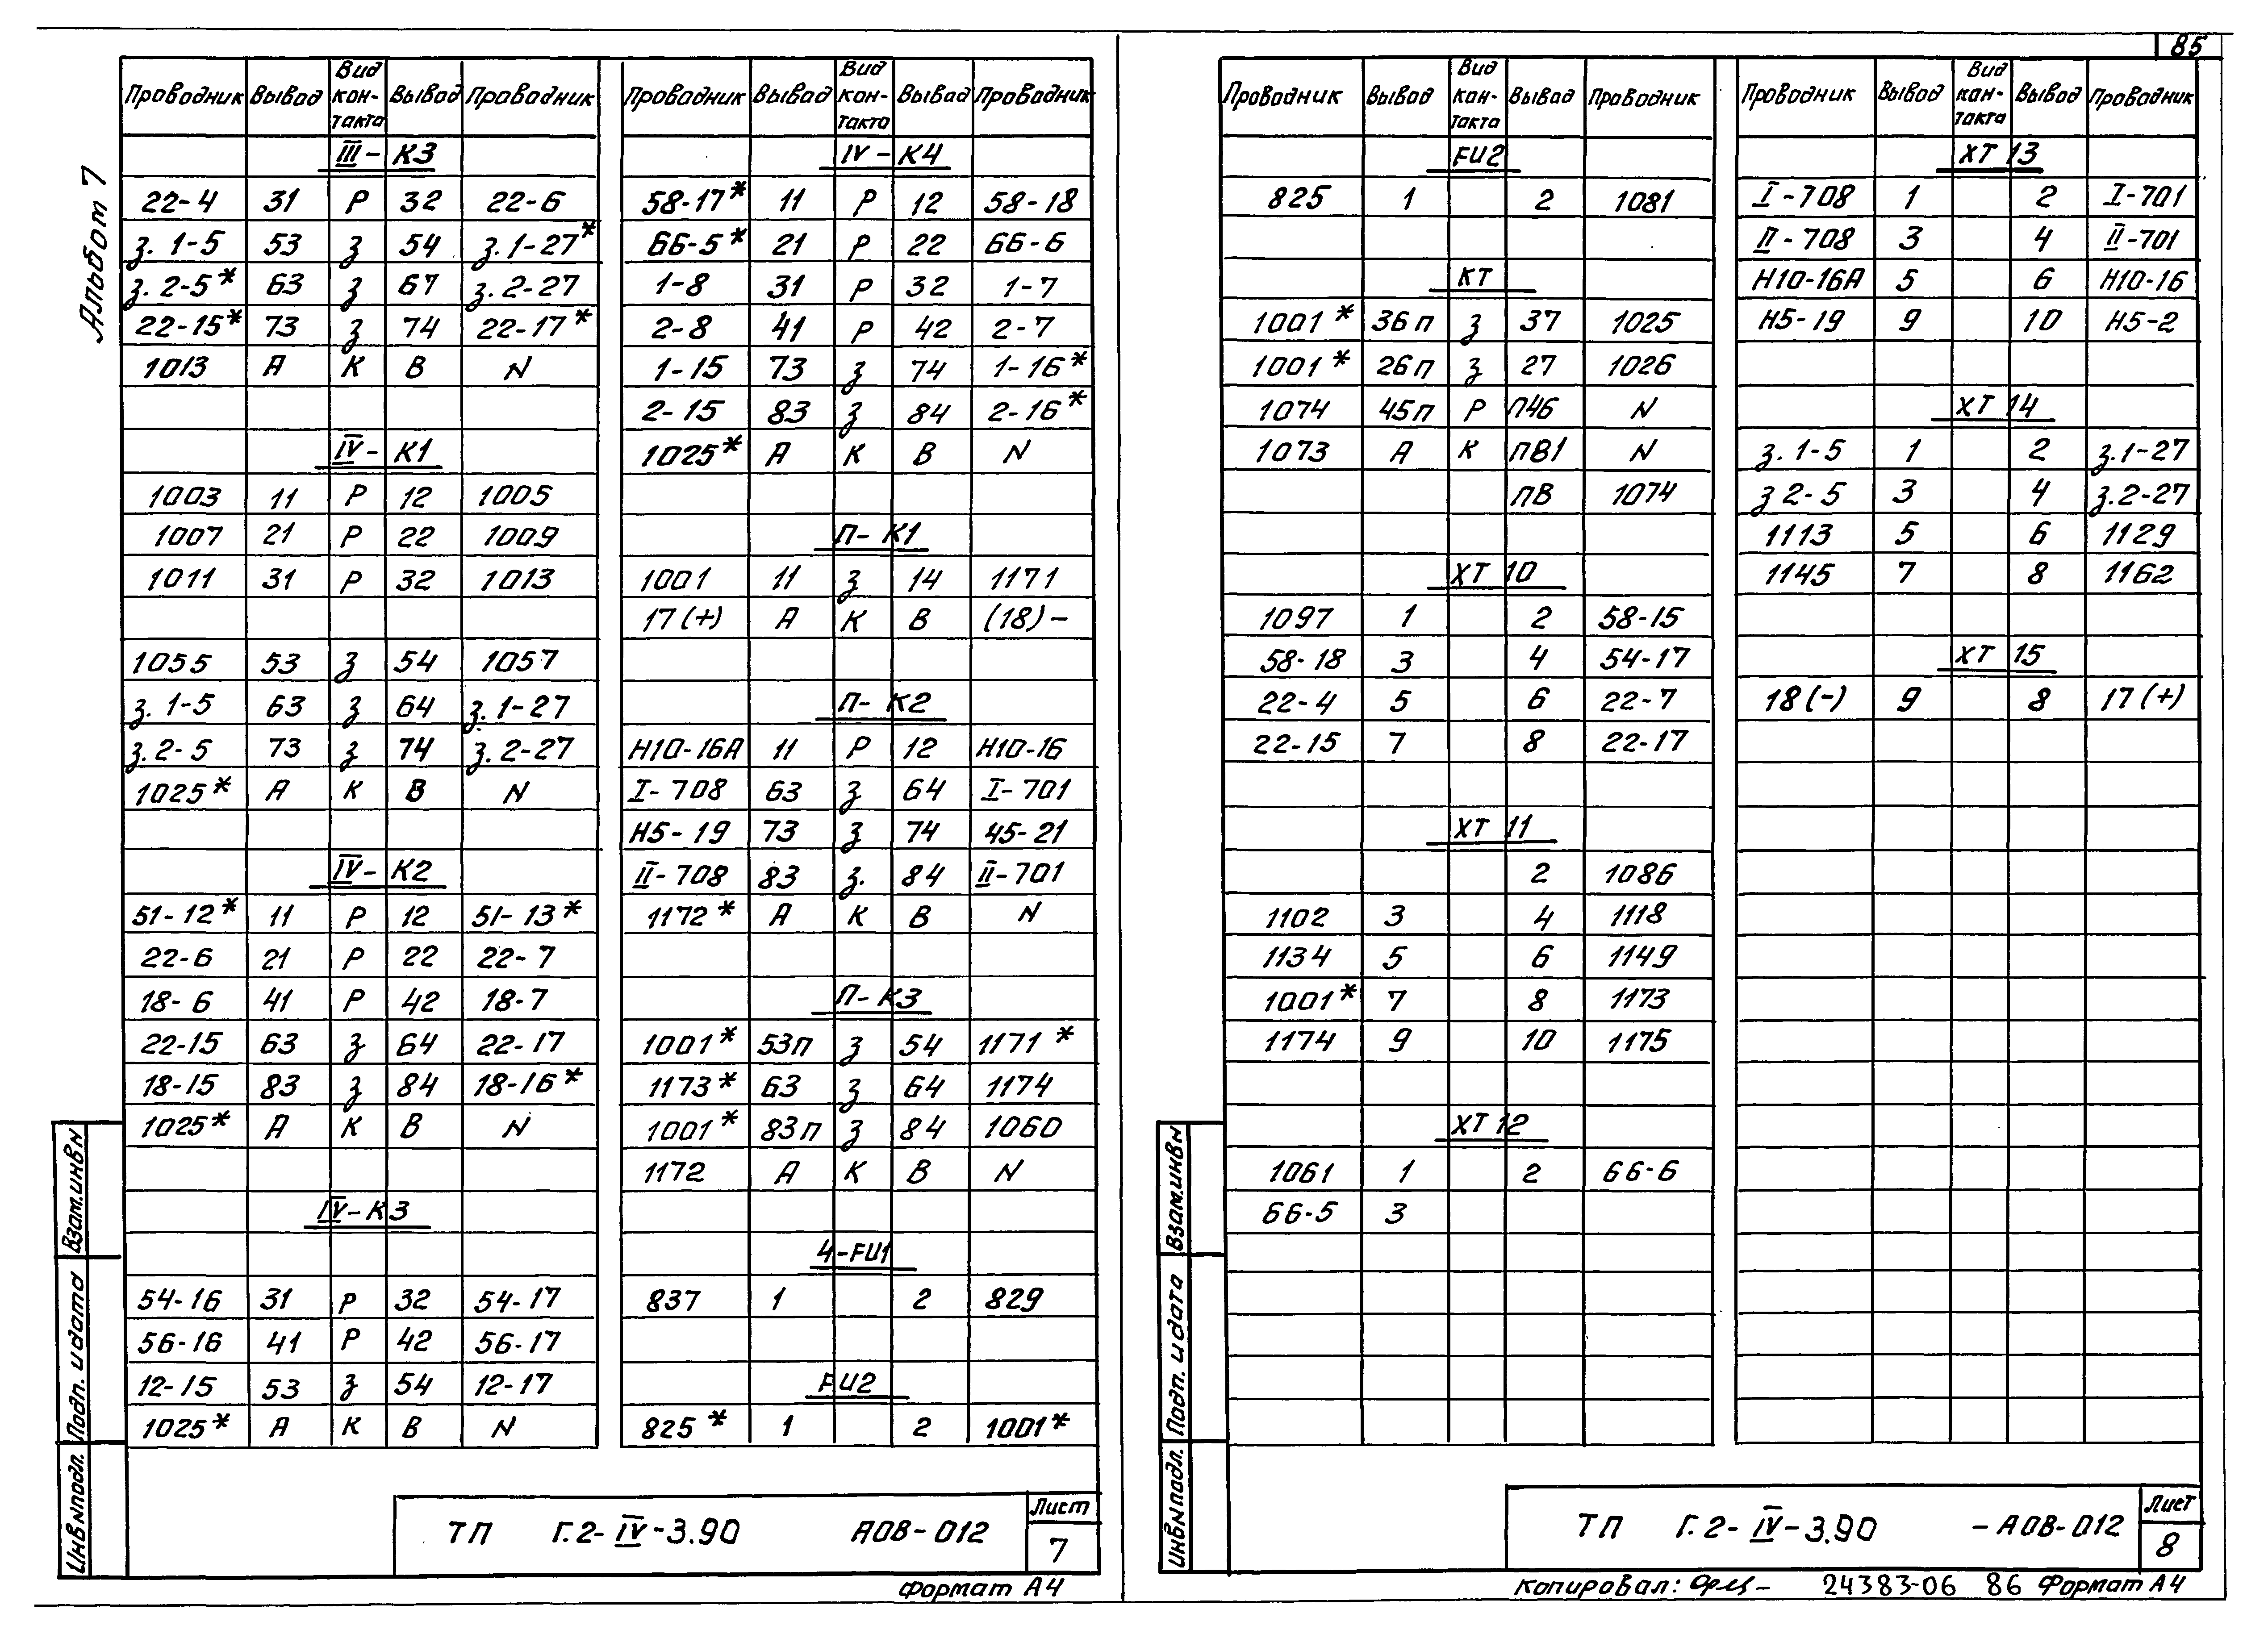 85
Альбом 7
Проводник Вывод Вид кон-такта Вывод Проводник
III - К3
22-4 31 Р 32 22-6
з. 1-5 53 з 54 з. 1-27*
з. 2-5* 63 з 67 з. 2-27
22-15* 73 з 74 22-17*
1013 А К В N
IV - К1
1003 11 Р 12 1005
1007 21 Р 22 1009
1011 31 Р 32 1013
1055 53 з 54 1057
з. 1-5 63 з 64 з. 1-27
з. 2-5 73 з 74 з. 2-27
1025* А К В N
IV - К2
51-12* 11 Р 12 51-13*
22-6 21 Р 22 22-7
18-6 41 Р 42 18-7
22-15 63 з 64 22-17
18-15 83 з 84 18-16*
1025* А К В N
IV-К3
54-16 31 Р 32 54-17
56-16 41 Р 42 56-17
12-15 53 з 54 12-17
1025* А К В N
Проводник Вывод Вид кон-такта Вывод Проводник
IV - К4
58-17* 11 Р 12 58-18
66-5* 21 Р 22 66-6
1-8 31 Р 32 1-7
2-8 41 Р 42 2-7
1-15 73 з 74 1-16*
2-15 83 з 84 2-16*
1025* А К В N
П- К1
1001 11 з 14 1171
17(+) А К В (18)-
П- К2
Н10-16А 11 Р 12 Н10-16
I-708 63 з 64 I-701
Н5-19 73 з 74 45-21
II-708 83 з. 84 II-701
1172* А К В N
П- К3
1001* 53п з 54 1171*
1173* 63 з 64 1174
1001* 83п з 84 1060
1172 А К В N
4-FU1
837 1 2 829
FU2
825* 1 2 1001*
Взам.инвN
Подп. и дата
ИнвNподл.
ТП Г.2-IV-3.90 АОВ-012
Лист
7
Формат А4
Проводник Вывод Вид кон-такта Вывод Проводник
FU2
825 1 2 1081
КТ
1001* 36п з 37 1025
1001* 26п з 27 1026
1074 45п Р П46 N
1073 А К ПВ1 N
ПВ 1074
ХТ 10
1097 1 2 58-15
58-18 3 4 54-17
22-4 5 6 22-7
22-15 7 8 22-17
ХТ 11
2 1086
1102 3 4 1118
1134 5 6 1149
1001* 7 8 1173
1174 9 10 1175
ХТ 12
1061 1 2 66-6
66-5 3
Проводник Вывод Вид кон-такта Вывод Проводник
ХТ 13
I-708 1 2 I-701
II-708 3 4 II-701
Н10-16А 5 6 Н10-16
Н5-19 9 10 Н5-2
ХТ 14
з. 1-5 1 2 з.1-27
з 2-5 3 4 з.2-27
1113 5 6 1129
1145 7 8 1162
ХТ 15
18(-) 9 8 17(+)
Взам.инвN
Подп. и дата
ИнвNподл.
ТП Г.2-IV-3.90 -АОВ-012
Лист
8
Копировал: 24383-06 86 Формат А4